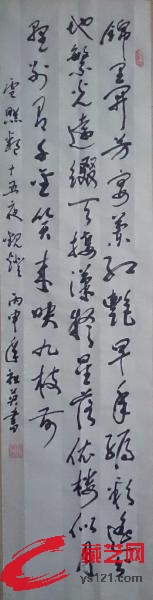 錦里開芳宴蘭紅艷早年縟彩遥分
地繁光遠綴天接漢疑星落依樓似月
懸別有千金笑來映九枝前
盧照鄰十五夜觀燈 丙申年 英書
ys121.com